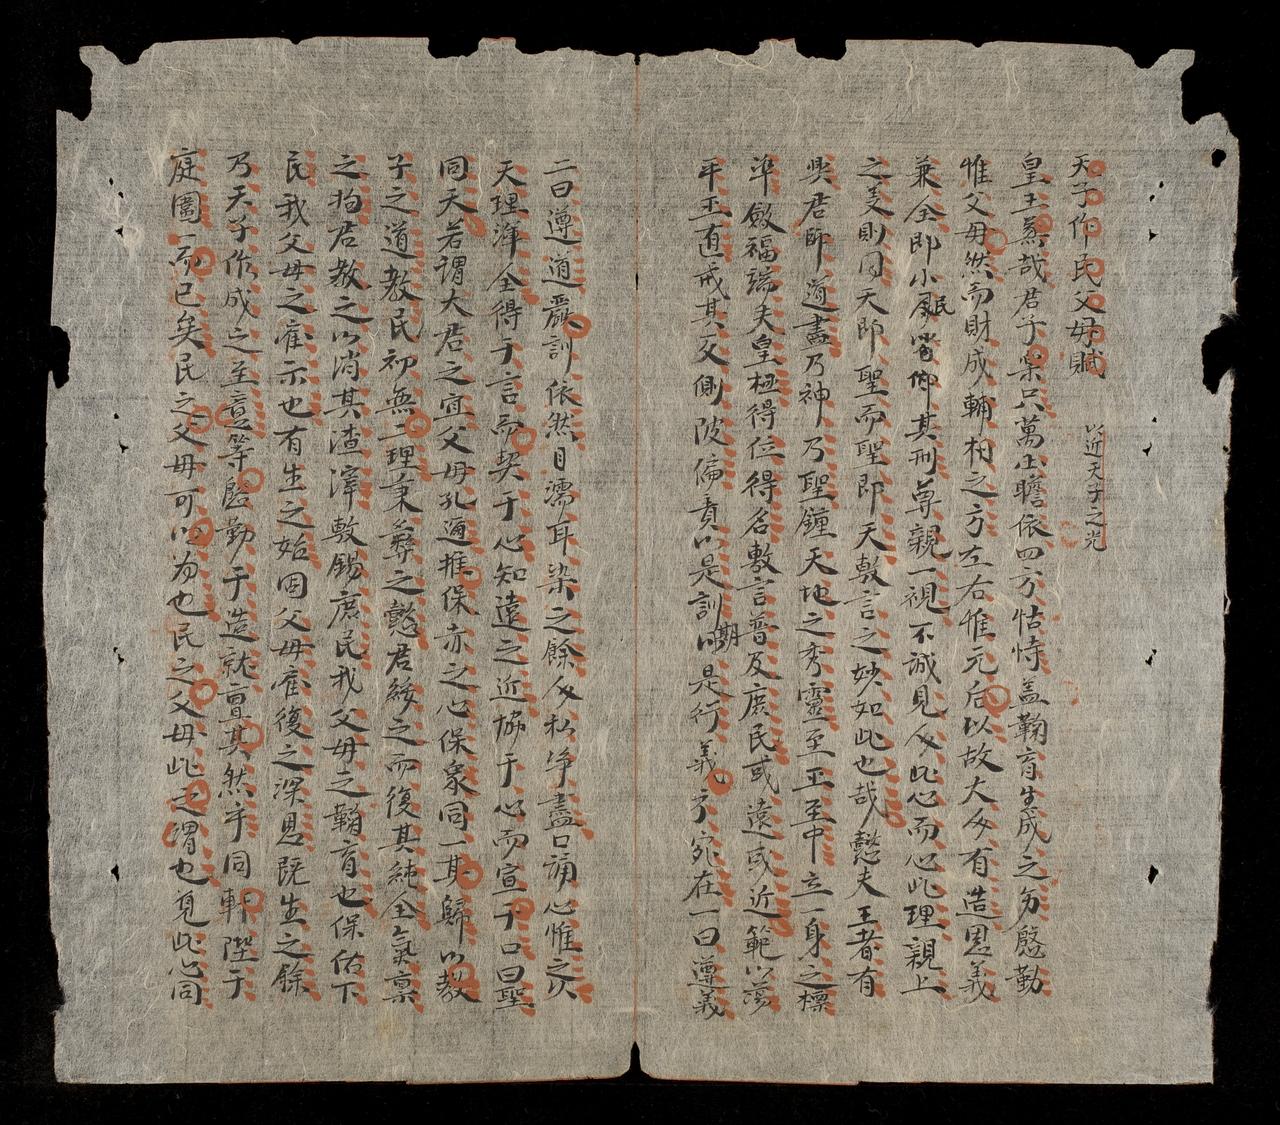 天子作民父母賦 以近天子之光
皇王烝哉君子樂只萬生瞻依四方怙恃盖鞠育生成之多慇勤
惟父母然而財成輔相之方左右惟元后以故大父有造恩義
兼全即小民皆仰其刑尊親一視不誠見父此心而心此理親上
之美則同天即聖而聖即天敷言之妙如此也哉懿夫王者有
與君師道盡乃神乃聖鍾天地之秀靈至正至中立一身之標
準斂福端夫皇極得位得名敷言普及庶民或遠或近範以蕩
平正直戒其反側陂偏責以是訓期以是行義方宛在一曰遵義
二曰遵道嚴訓依然目濡耳染之餘父私净盡口誦心惟之次
天理渾全得于言而契于心知遠之近協于心而宣于口曰聖
同天若謂大君之宜父母孔邇推保赤之心保衆同一其歸以教
子之道教民初無二理秉彝之懿君綏之而復其純全氣禀
之拘君教之以消其渣滓敷錫庶民我父母之鞠育也保佑下
民我父母之 示也有生之始固父母 復之深恩既生之餘
乃天子作成之至意等慇勤于造就亶其然乎同 陛于
庭闈一而已矣民之父母可以為也民之父母此之謂也覓此心同